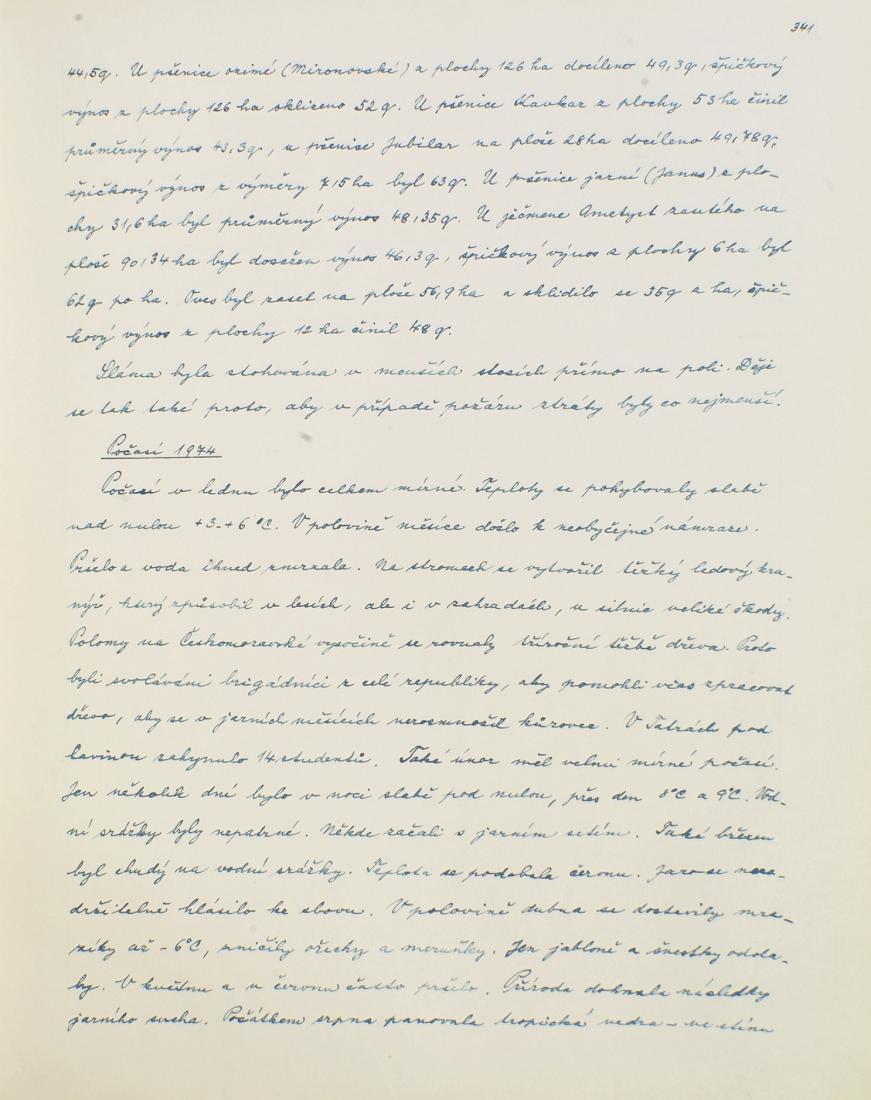 341
44,5q. U pšenice ozimé (Mironovské) z plochy 126 ha docíleno 49,3q, špičkový
výnos z plochy 126 ha sklizeno 52 q. U pšenice Kavkaz z plochy 53 ha činil
průměrný výnos 43,3q, u pšenice Jubilar na ploše 28ha docíleno 49,78q,
špičkový výnos z výměry 7,15 ha byl 63 q. U pšenice jarní (Janus) z plo-
chy 31,6 ha byl průměrný výnos 48,35q. U ječmene Ametyst zasetého na
ploše 90,34 ha byl dosažen výnos 46,3q, špičkový výnos z plochy 6 ha byl
62 q po ha. Oves byl zaset na ploše 56,9 ha a sklidilo se 35q z ha, špič-
kový výnos z plochy 12 ha činil 48 q.
Sláma byla stohována v menších stozích přímo na poli. Děje
se tak také proto, aby v případě požáru ztráty byly co nejmenší.
Počasí 1974
Počasí v lednu bylo celkem mírné. Teploty se pohybovaly slabě
nad nulou +3-+6 °C. V polovině měsíce došlo k neobyčejné námraze.
Pršelo a voda ihned zmrzala. Na stromech se vytvořil těžký ledový kru-
nýř, který způsobil v lesích, ale i v zahradách, u silnic veliké škody.
Polomy na Českomoravské vysočině se rovnaly tříroční těžbě dřeva. Proto
byli svoláváni brigádníci z celé republiky, aby pomohli včas zpracovat
dřevo, aby se v jarních měsících nerozmnožil kůrovec. V Tatrách pod
lavinou zahynulo 14 studentů. Také únor měl velmi mírné počasí.
Jen několik dní bylo v noci slabě pod nulou, přes den 8°C a 9°C. Vod-
ní srážky byly nepatrné. Někde začali s jarním setím. Také březen
byl chudý na vodní srážky. Teplota se podobala červnu. Jaro se neza-
držitelně hlásilo ke slovu. V polovině dubna se dostavily mra-
zíky až -6°C, zničily ořechy a meruňky. Jen jabloně a švestky odola-
ly. V květnu a v červnu často pršelo. Příroda dohnala následky
jarního sucha. Počátkem srpna panovala tropická vedra - ve stínu